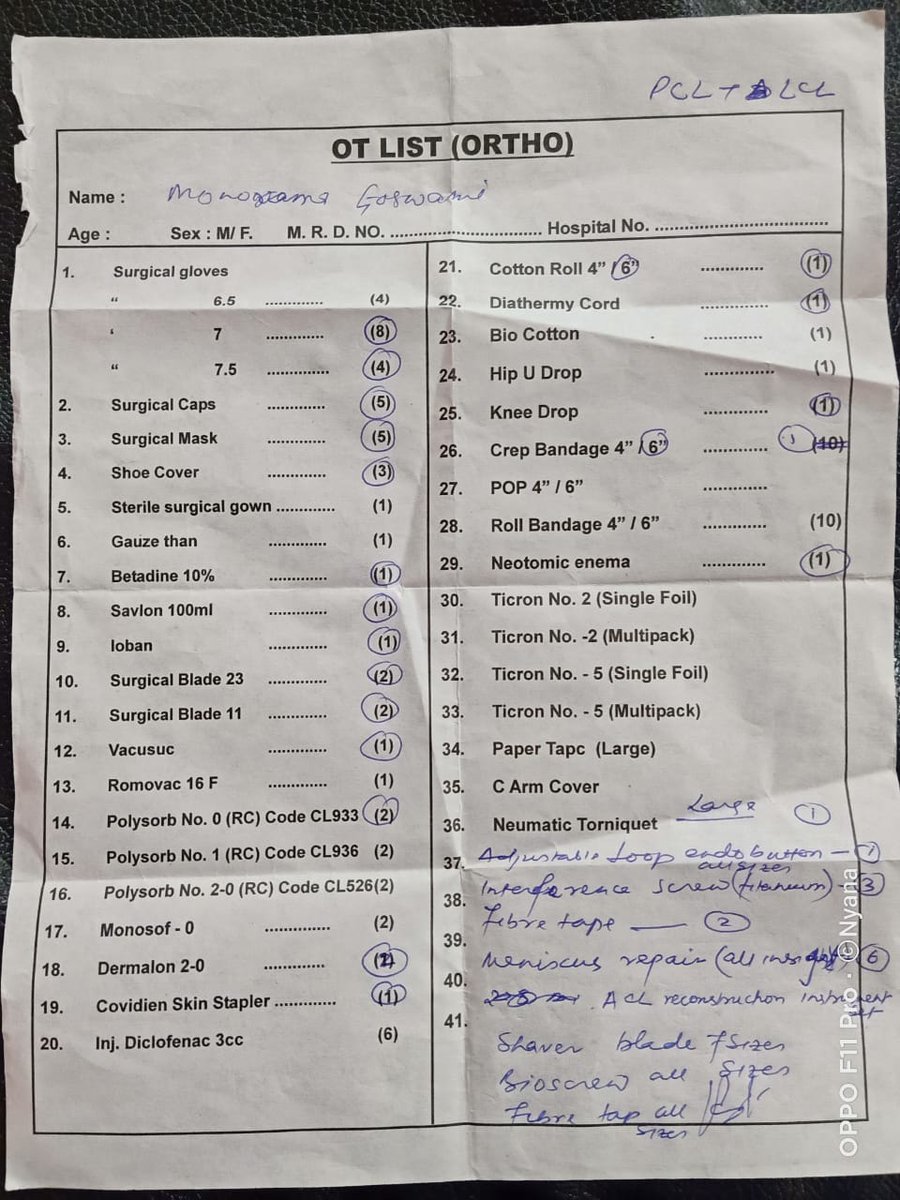 PCL + LCL
OT LIST (ORTHO)
Name : Goswami
Age : Sex : M/ F. M. R. D. NO. .............................. Hospital No. ..................................
1. Surgical gloves
“ 6.5 ............. (4)
‘ 7 ............. (8)
“ 7.5 ............. (4)
2. Surgical Caps ............. (5)
3. Surgical Mask ............. (5)
4. Shoe Cover ............. (3)
5. Sterile surgical gown ............. (1)
6. Gauze than ............. (1)
7. Betadine 10% ............. (1)
8. Savlon 100ml ............. (1)
9. Ioban ............. (1)
10. Surgical Blade 23 ............. (2)
11. Surgical Blade 11 ............. (2)
12. Vacusuc ............. (1)
13. Romovac 16 F ............. (1)
14. Polysorb No. 0 (RC) Code CL933 (2)
15. Polysorb No. 1 (RC) Code CL936 (2)
16. Polysorb No. 2-0 (RC) Code CL526(2)
17. Monosof - 0 ............. (2)
18. Dermalon 2-0 ............. (2)
19. Covidien Skin Stapler ............. (1)
20. Inj. Diclofenac 3cc (6)
21. Cotton Roll 4” / 6” ............. (1)
22. Diathermy Cord ............. (1)
23. Bio Cotton ............. (1)
24. Hip U Drop ............. (1)
25. Knee Drop ............. (1)
26. Crep Bandage 4” / 6” ............. 1 (10)
27. POP 4” / 6” .............
28. Roll Bandage 4” / 6” ............. (10)
29. Neotomic enema ............. (1)
30. Ticron No. 2 (Single Foil)
31. Ticron No. -2 (Multipack)
32. Ticron No. - 5 (Single Foil)
33. Ticron No. - 5 (Multipack)
34. Paper Tapc (Large)
35. C Arm Cover
36. Neumatic Torniquet Large 1
37. Adjustable Loop endobutton - 1
all sizes
38. Interference screw (titanium) - 3
39. Fibre tape — 2
40. Meniscus repair (all inside) 6
41. ACL reconstruction instrument set
Shaver blade 7 Sizes
Bioscrew all Sizes
Fibre tap all
sizes
OPPO F11 Pro · ©Nyana